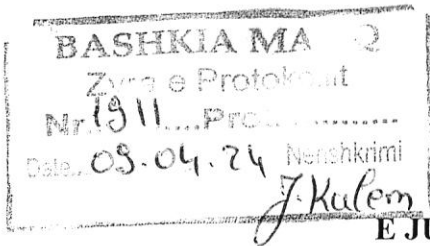 BASHKIA MA Q
Zyra e Protokollit
Nr. 1911 Prot
Date. 09.04.24 Nenshkrimi
J. Kulem
E JU